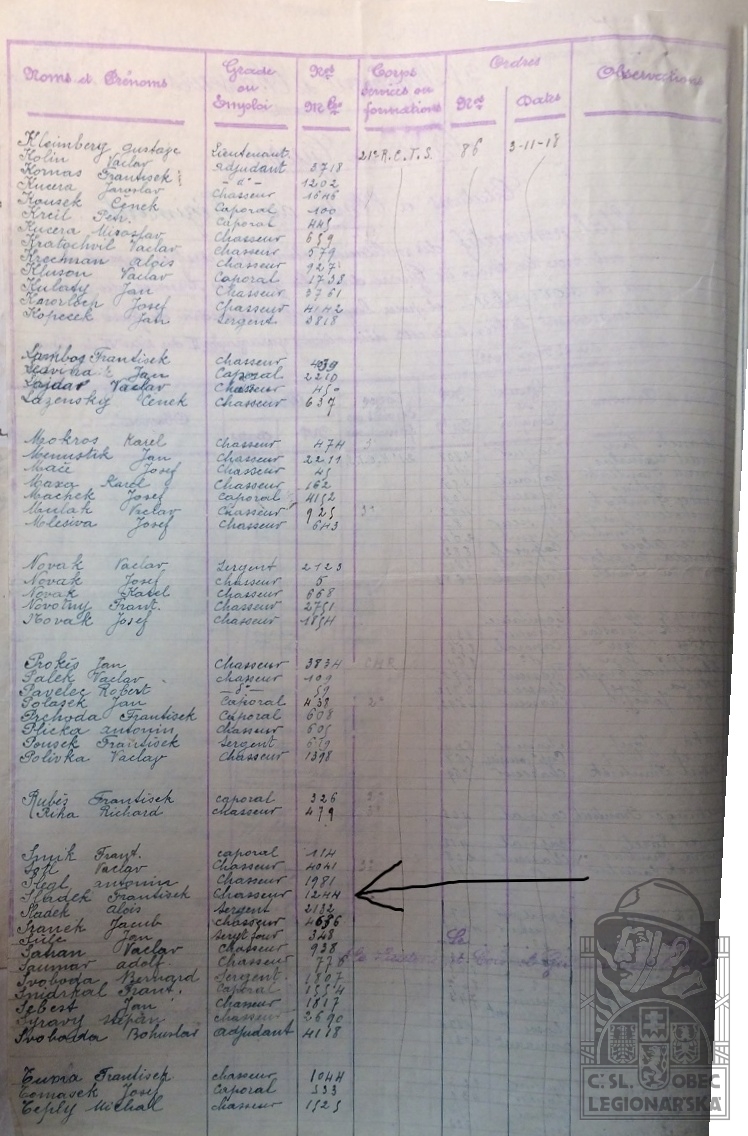 Noms et Prénoms Grade ou Emploi Nos Mles Corps Services ou formations Ordres Nos Dates Observations
Kleimberg Gustave Lieutenant 21e R.C.T.S. 86 3-11-18
Kolin Vaclav Adjudant 3718
Komas Frantisek -d°- 1202
Kucera Jaroslav Chasseur 1646
Kousek Cenek Caporal 100
Kreil Petr. Caporal 445
Kucera Miroslav Chasseur 659
Kratochvil Vaclav Chasseur 579
Krechman Alois Chasseur 927
Kluson Vaclav Caporal 1738
Kulaty Jan Chasseur 3761
Josef Chasseur 4142
Kopecek Jan Sergent 3818
Frantisek Chasseur
Jan Caporal 2210
Lajdar Vaclav Chasseur
Lazensky Cenek Chasseur 637
Mokros Karel Chasseur 474
Jan Chasseur 2251
Josef Chasseur 45
Maxa Karel Chasseur 162
Machek Josef Caporal 4152
Mulak Vaclav Chasseur 925
Molesiva Josef Chasseur 643
Novak Vaclav Sergent 2123
Novak Josef Chasseur 5
Novak Karel Chasseur 668
Novotny Frant. Chasseur 2751
Novak Josef Chasseur 1854
Prokes Jan Chasseur 3834
Palek Vaclav Chasseur 109
Pavelec Robert -d°- 59
Polasek Jan Caporal 438
Prchoda Frantisek Caporal 608
Plicka Antonin Chasseur 605
Pousek Frantisek Sergent 659
Polivka Vaclav Chasseur 1398
Rubes Frantisek Caporal 326
Rika Richard Chasseur 479
Smik Frant. Caporal 114
Vaclav Chasseur 4041
Slegl Antonin Chasseur 1981
Sladek Frantisek Chasseur 1244
Sladek Alois Sergent 2132
Sranek Jacob Chasseur 4686
Sule Jan Sergt four 348
Sahan Vaclav Chasseur 938
Saumar Adolf Chasseur 77
Svoboda Bernard Sergent 1807
Snidrkal Frant. Caporal 1554
Sebest Jan Chasseur 1817
Syravy Stepan Chasseur 2690
Svoboda Bohuslav Adjudant 4118
Tuma Frantisek Chasseur 1044
Tomasek Josef Caporal 533
Teply Michal Chasseur 1525
Č.SL. OBEC
LEGIONÁŘSKÁ